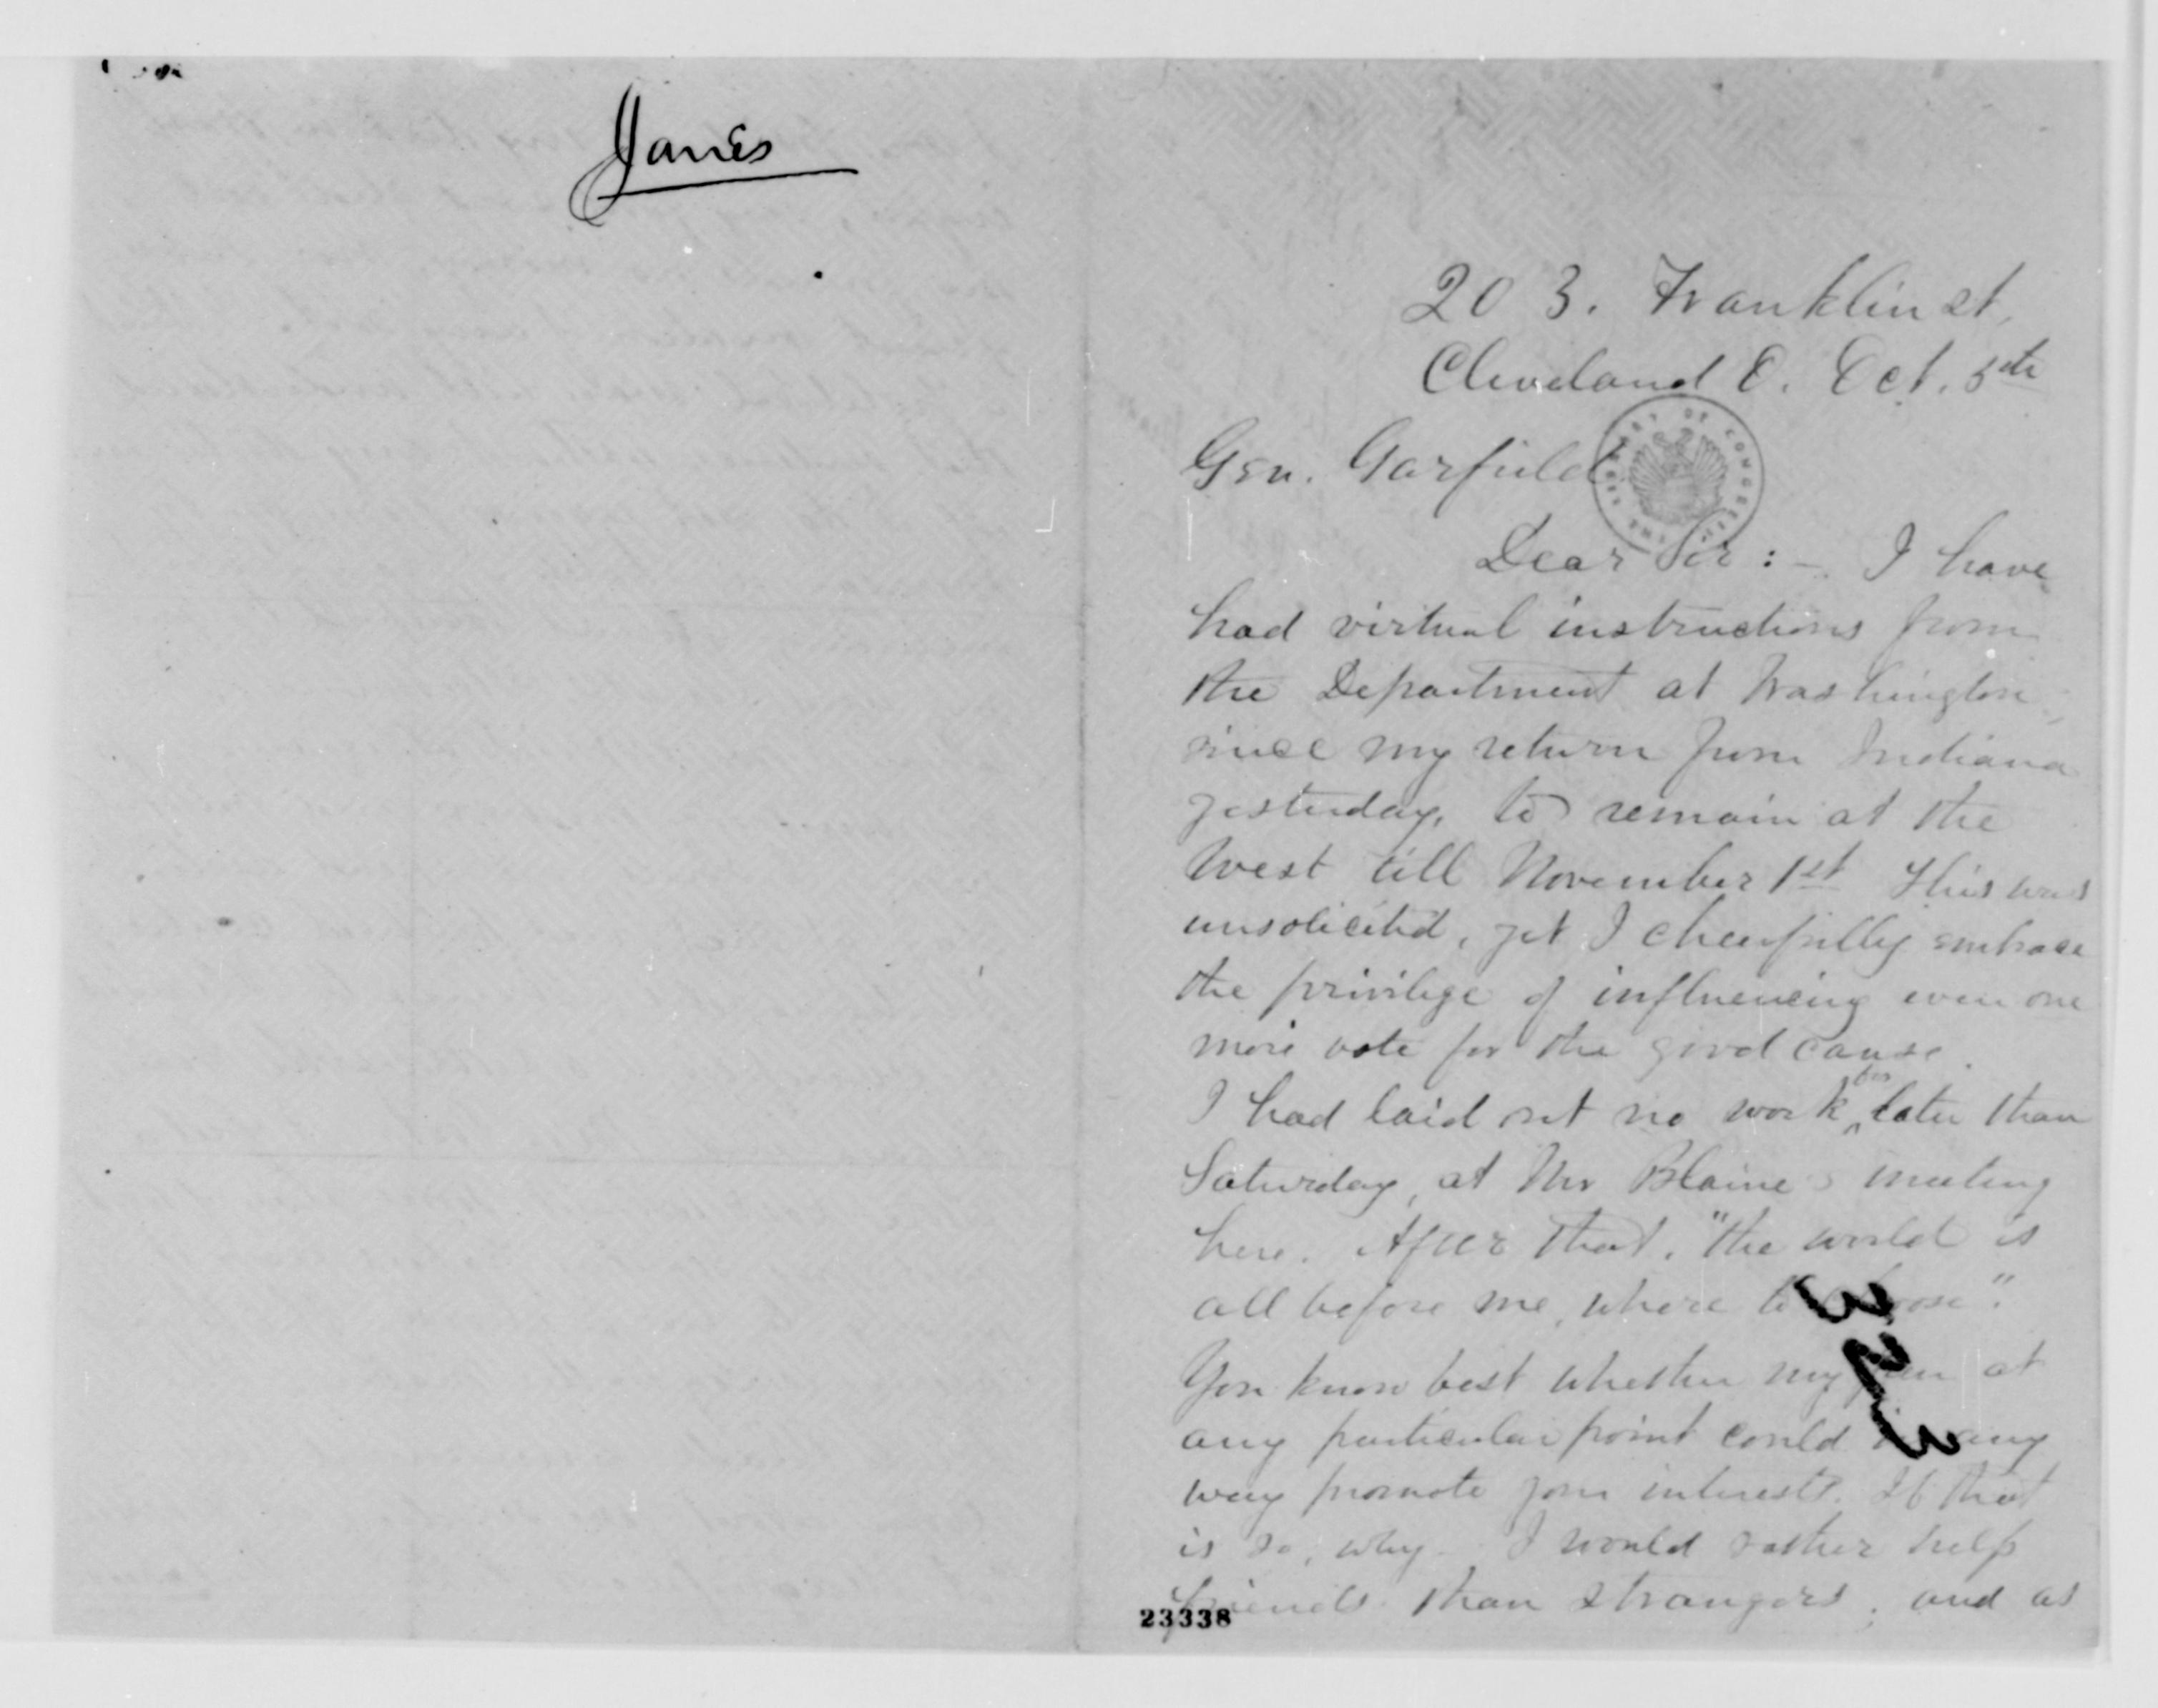 James
203. Franklin st,
Cleveland O. Oct. 5th
Gen. Garfield
LIBRARY OF CONGRESS
Dear Sir :- I have
had virtual instructions from
the Department at Washington,
since my return from Indiana
yesterday, to remain at the
West till November 1st This was
unsolicited, yet I cheerfully embrace
the privilege of influencing even one
more vote for the good cause.
I had laid out no work later than
Saturday, at Mr Blaine's meeting
here. After that, "the world is
all before me, where to choose".
You know best whether my pen at
any particular point could in any
way promote your interests. If that
is so, why - I would rather help
friends than strangers; and as
23338